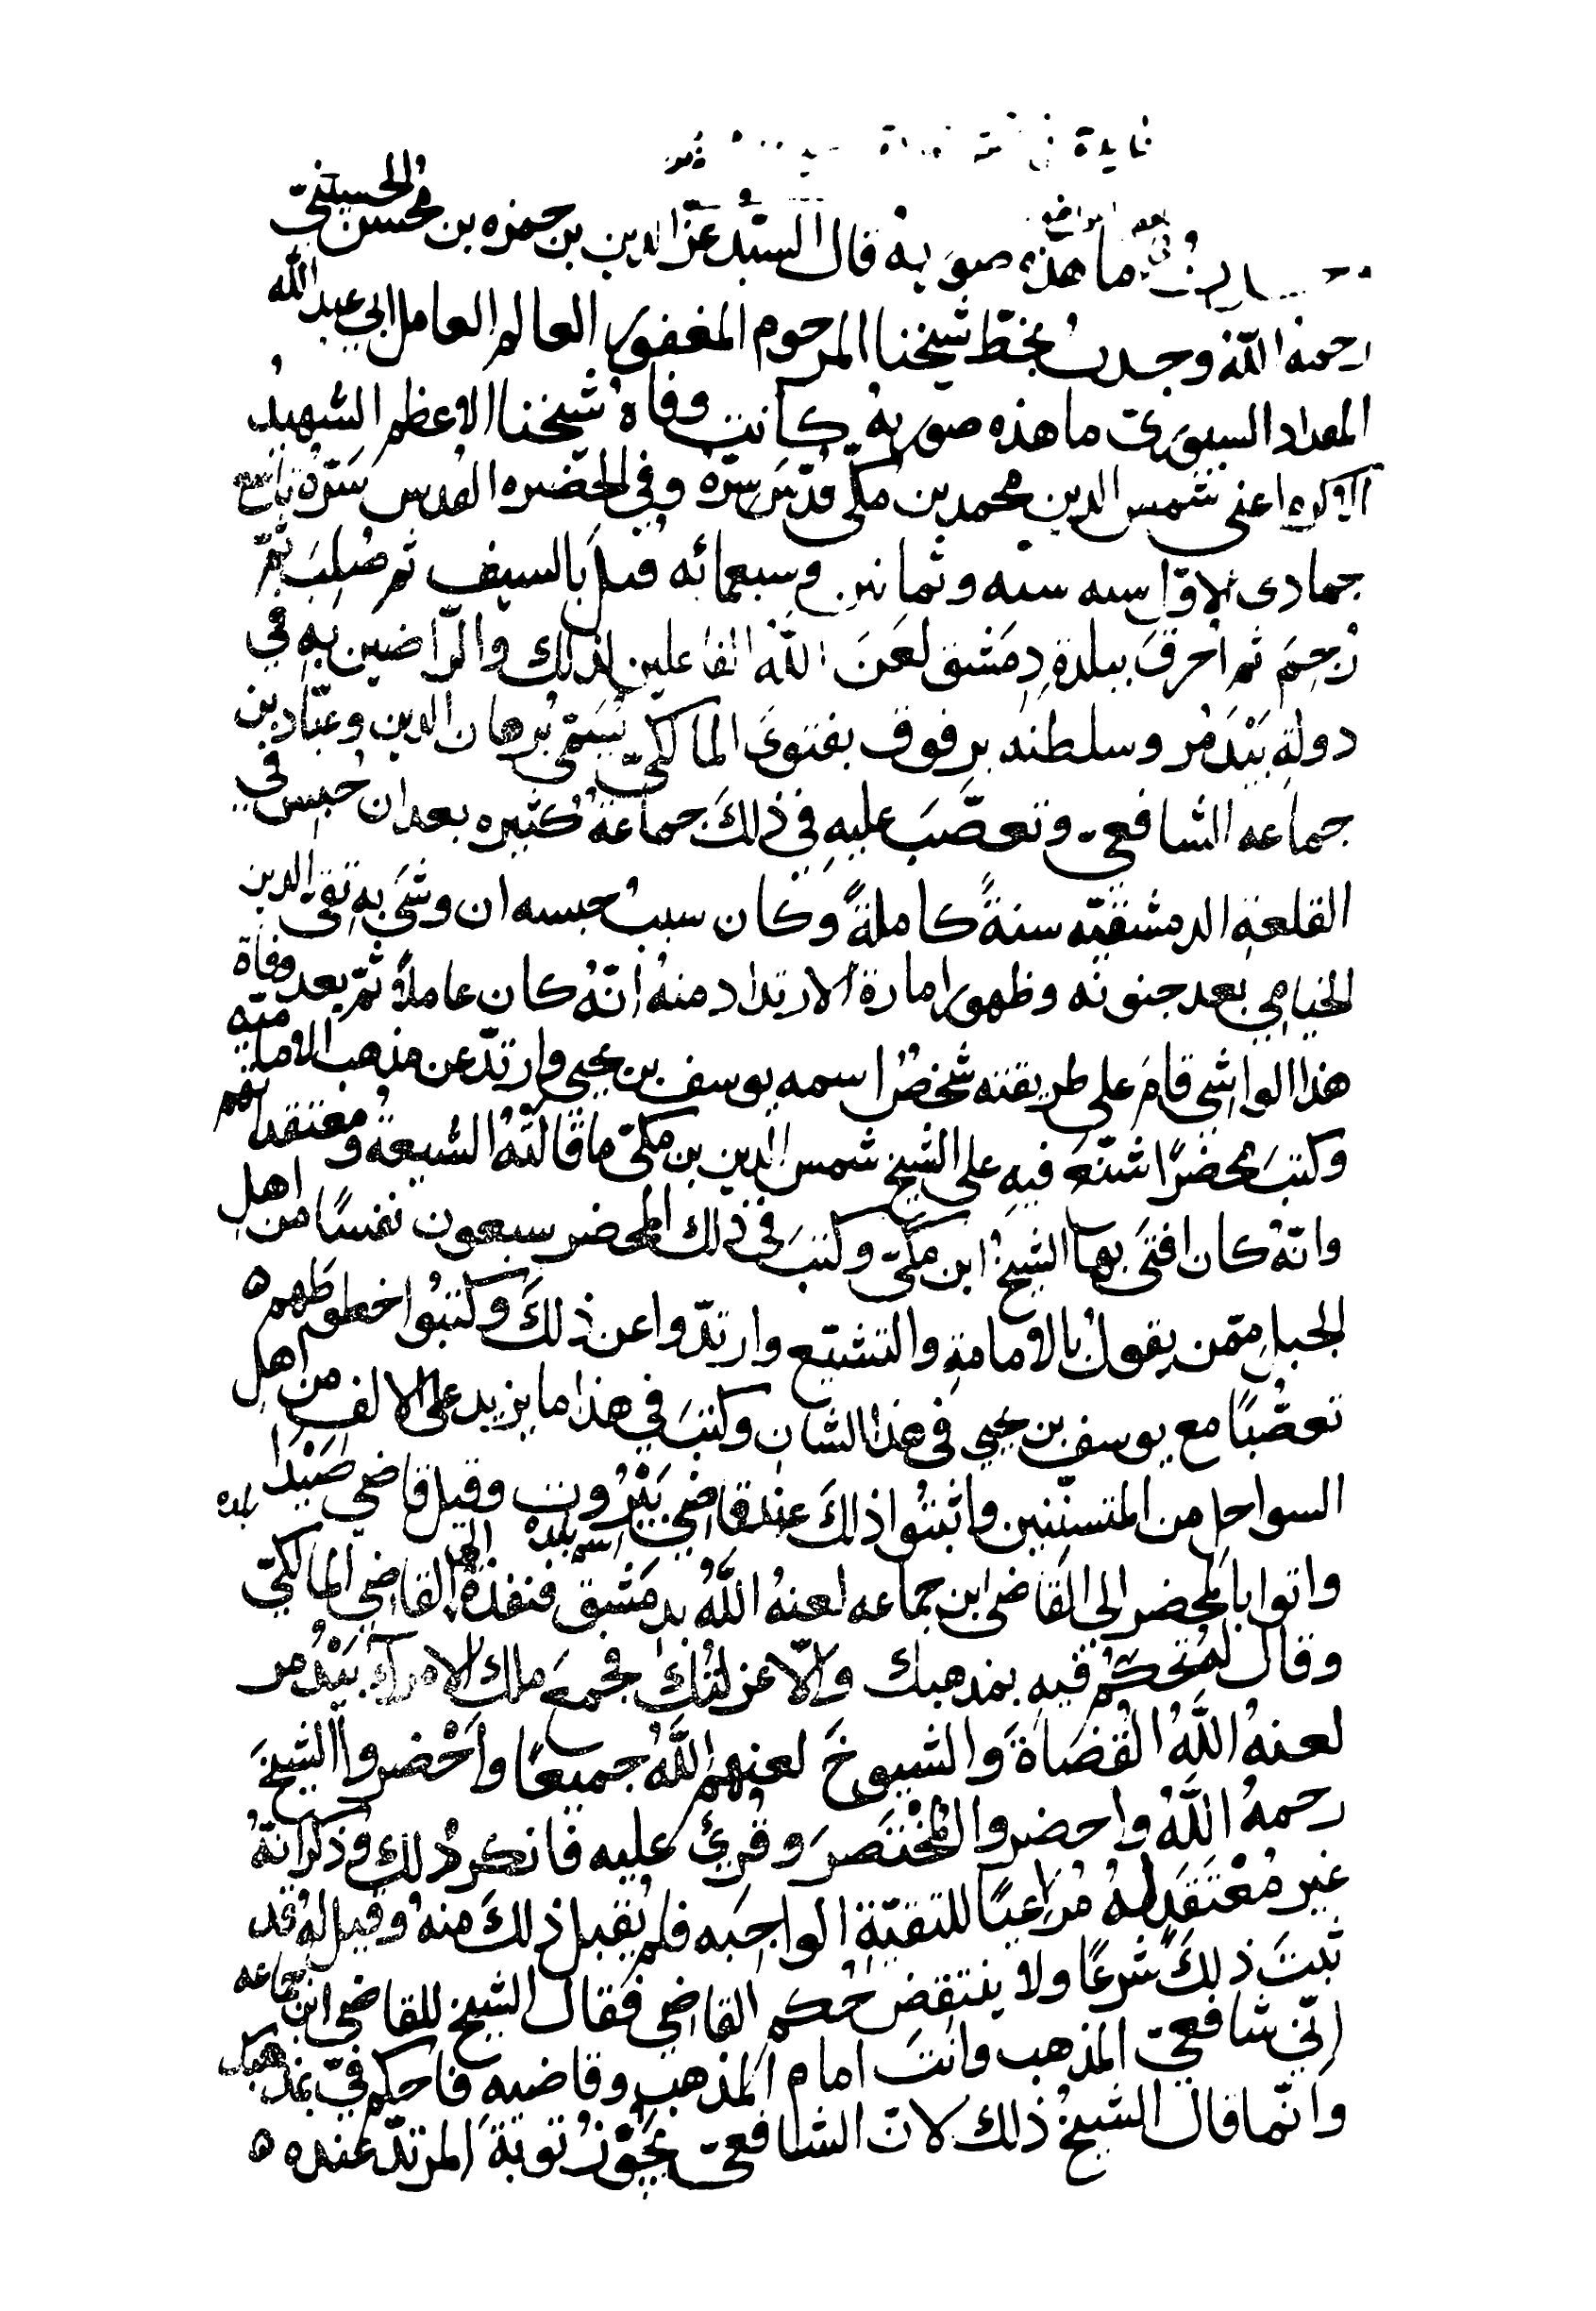 فايدة في
في بعض المواضع
ما هذه صورته قال السيد عز الدين بن حمزه بن محسن الحسيني
رحمه الله وجدت بخط شيخنا المرحوم المغفور العالم العامل ابي عبد الله
المقداد السيوري ما هذه صورته كانت وفاة شيخنا الاعظم الشهيدُ
اعني شمس الدين محمد بن مكي قُدّسَ سرّه وفي الحضره القدس سرّهُ تاسع
جمادى الاوّل سنه سته وثمانين وسبعمائه قتل بالسيف ثم صُلِبَ ثمّ
رُجِمَ ثم اُحرِقَ ببلدةِ دِمَشق لَعَنَ اللهُ الفاعلين لذلك والرّاضين بهِ في
دولةِ بَيْدَمُر وسلطنه برقوق بفتوىَ المالكيّ يُسَمّى بُرهان الدين وعبّاد بن
جماعه الشافعي وتعصَّبَ عليهِ في ذلكَ جماعةُ كثيره بعد ان حُبِسَ في
القلعةِ الدمشقيّه سنةً كاملةً وكان سببُ حبسه ان وشَى بهِ تقيّ الدين
الخيامي بعد جنونه وظهور امارة الارتداد منهُ انّهُ كان عاملاً ثمّ بعد وفاة
هذا الواشي قامَ على طريقته شخصٌ اسمه يوسف بن يحيى وارتدّ عن مذهب الاماميّه
وكتبَ محضرًا شنّعَ فيهِ على الشيخ شمس الدين بن مكّي ما قالتهُ الشيعةُ ومعتقداتهم
وانّهُ كان افتَى بها الشيخُ ابن مكّي وكتبَ في ذلك المحضر سبعون نفسًا من اهلِ
الجبلِ ممّن يقولُ بالامامةِ والتشيّع وارتدّوا عن ذلكَ وكتبُوا خطوطهم ه
تعصُّبًا مع يوسف بن يحيى في هذا الشان وكتبَ في هذا ما يزيد على الالفِ من اهلِ
السواحل من المتسنّنين واثبتُوا ذلكَ عند قاضي بَيْرُوت وقيل قاضي صَيْدا
اسم بلده
بلده
واتوا بالمحضر الى القاضي ابن جماعه لعنهُ اللهُ بدمَشق فنفذهُ الى القاضي المالكيّ
وقال لهُ تحكُم فيهِ بمذهبك والّا عزلتُكَ فجمعَ ملك الامرآء بَيْدُمر
لعنهُ اللهُ القُضاةَ والشيوخَ لعنهم اللهُ جميعًا واَحْضروا الشيخَ
رحمهُ اللهُ واحضروا المُخْتَصرَ وقُرِئ عليه فانكر ذلك وذكرَ انّهُ
غير مُعْتَقِدٍ لهُ مُراعيًا للتقيّةِ الواجبه فلم يُقبل ذلكَ منهُ وقيل لهُ قد
ثبتَ ذلكَ شرعًا ولا ينتقضُ حُكم القاضي فقال الشيخ للقاضي ابن جماعه
إنّي شافعيّ المذهب وانتَ امام المذهب وقاضيهِ فاحكم فيّ بمذهبك
وانّما قال الشيخُ ذلك لانّ الشافعيّ يجوّزُ توبةَ المرتدّ عنده ه